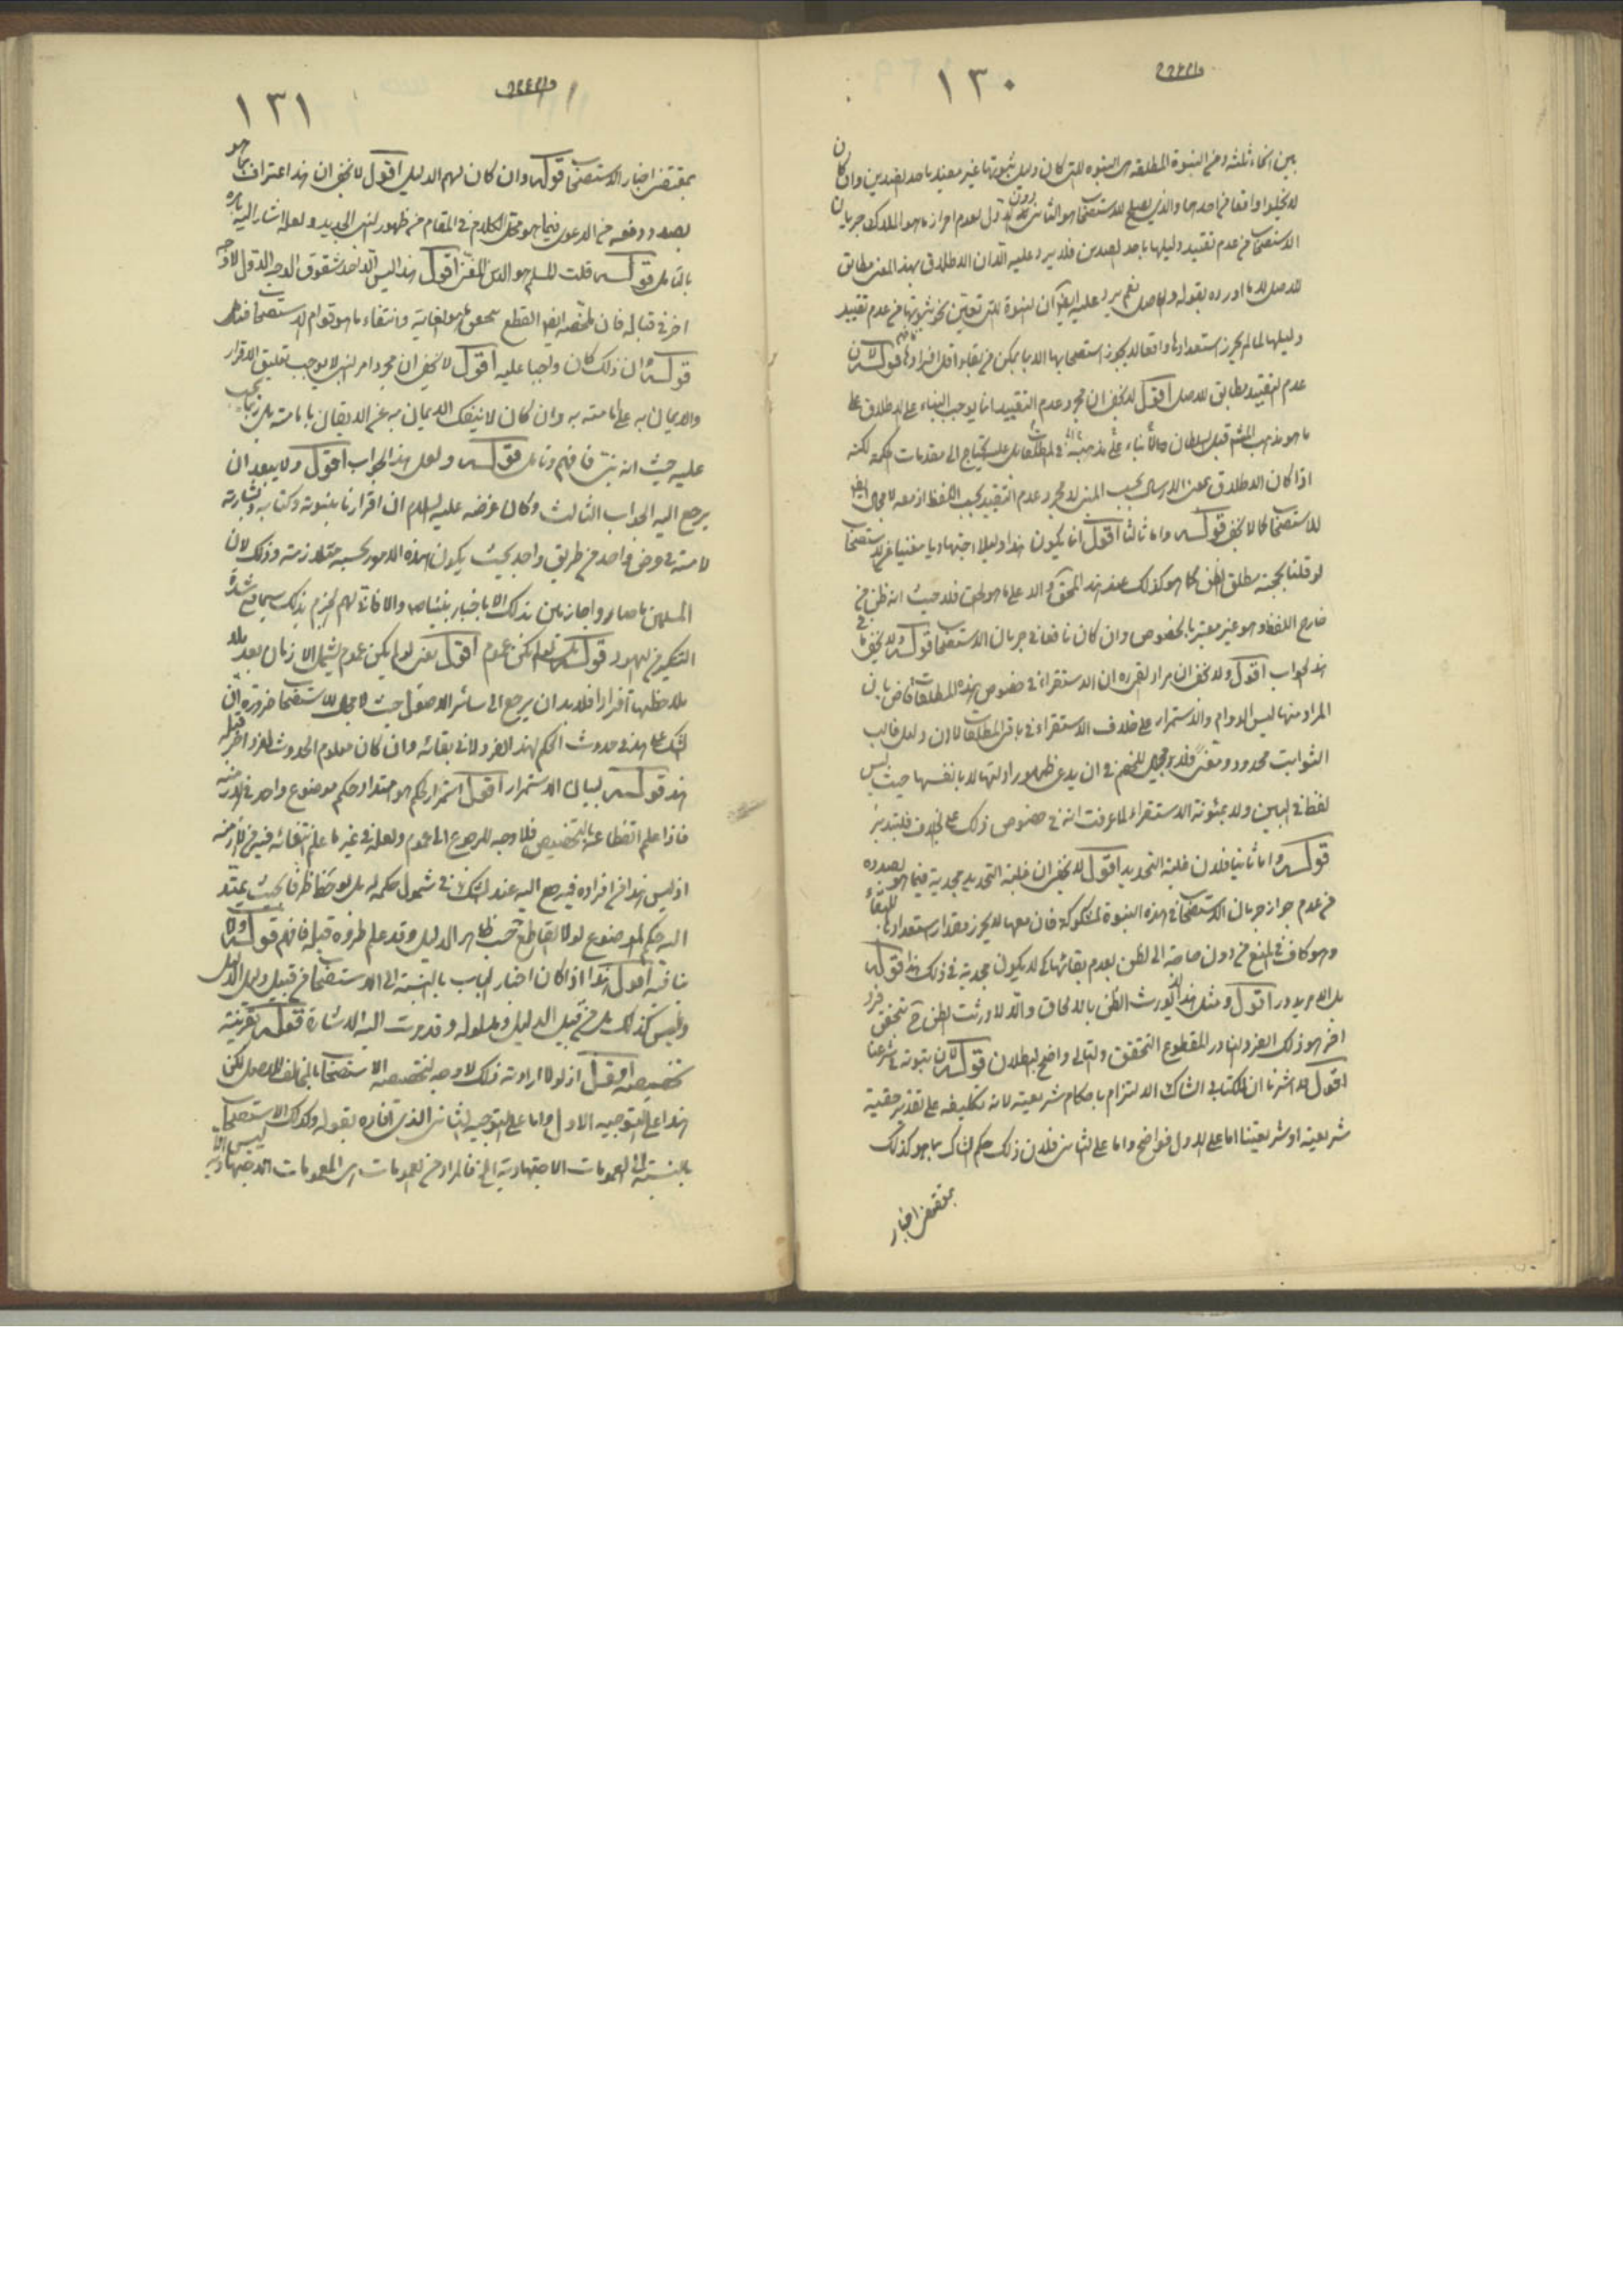 ١٣٠
بين انحاء ثلثه ومن النبوة المطلقه هى النبوة التى كان دليل ثبوتها غير مقيد باحد القيدين وان كان
لا يخلوا واقعا من احدهما والذى يصلح للاستصحاب هو الثانى دون الاول لعدم احراز ما هو الملاك فى جريان
الاستصحاب من عدم تقييد دليلها باحد القيدين فلا يرد عليه الا ان الاطلاق بهذا المعنى مطابق
للاصل لا ما اورده بقوله والاصل نعم يرد عليه ايضا ان النبوة التى تعين نحو ثبوتها من عدم تقييد
دليلها لما لم يحرز استعدادها واقعا لا يجوز استصحابها الا بما يمكن من بقاء اقل افرادها فافهم قوله لان
عدم التقييد مطابق للاصل اقول لا يخفى ان مجرد عدم التقييد انما يوجب البناء على الاطلاق على
ما هو مذهب المشهور قبل السلطان بناء على مذهبه فى المطلقات بل يحتاج الى مقدمات الحكمة لكنه
اذا كان الاطلاق بمعنى الارسال بحسب المعنى لا مجرد عدم التقييد بحسب اللفظ اذ معه لا مجال ايضا
للاستصحاب كما لا يخفى قوله واما ثالثا اقول انما يكون هذا دليلا اجتهاديا مغنيا عن الاستصحاب
لو قلنا بحجية مطلق الظن كما هو كذلك عند هذا المحقق والا على ما هو الحق فلا حيث انه ظن من
خارج اللفظ وهو غير معتبر بالخصوص وان كان نافعا فى جريان الاستصحاب قوله ولا يخفى ما فى
هذا الجواب اقول ولا يخفى ان مراد القمى ره ان الاستقراء فى خصوص هذه المطلقات قاض بان
المراد منها ليس الدوام والاستمرار على خلاف الاستقراء فى باقى المطلقات لان دليل غالب
الثوابت محدود ومغيى فلا مجال للخصم فى ان يدعى ظهور ادلتها لا بانفسها حيث ليس
لفظ فى البين ولا بمئونة الاستقراء لما عرفت انه فى خصوص ذلك على الخلاف فليتدبر
قوله واما ثانيا فلان غلبة التحديد اقول لا يخفى ان غلبة التحديد مجدية فيما هو بصدده
من عدم جواز جريان الاستصحاب فى هذه النبوة المشكوكة فان معها لا يحرز مقدار استعدادها للبقاء
وهو كاف فى المنع من دون حاجة الى الظن بعدم بقائها كى لا يكون مجدية فى ذلك هذا قوله
بل الامر يدور اقول ومثل هذا لا يورث الظن بالالحاق والا لاورثت الظن ح بتحقق فرد
اخر هو ذلك الفرد النادر المقطوع التحقق والتالى واضح البطلان قوله لان ثبوته فى شرعنا
اقول قد اشرنا ان الكتابى الشاك الالتزام باحكام شريعته لانه تكليفه على تقدير حقية
شريعته او شريعتنا اما على الاول فواضح واما على الثانى فلان ذلك حكم الشاك بما هو كذلك
بمقتضى اخبار
١٣١
بمقتضى اخبار الاستصحاب قوله وان كان لهم الدليل اقول لا يخفى ان هذا اعتراف بما هو
بصدد دفعه من الدعوى فيما هو محل الكلام فى المقام من ظهور النبى الجديد ولعله اشار اليه بامره
بالتامل قوله قلت المسلم هو الدين المغيى اقول هذا ليس الا احد شقوق الوجه الاول لا وجه
اخر فى قباله فان ملخصه ايضا القطع بتحقق ما هو الغاية وانتفاء ما هو قوام الاستصحاب فتامل
قوله وان ذلك كان واجبا عليه اقول لا يخفى ان مجرد امر النبى لا يوجب تعليق الاقرار
والايمان به على امته به وان كان لا ينفك الايمان به عن الايقان بامته بل ربما يجب
عليه حيث انه نبى فافهم وتامل قوله ولعل هذا الجواب اقول ولا يبعد ان
يرجع اليه الجواب الثالث وكان غرضه عليه السلام ان اقرارنا بنبوته وكتابه وبشارته
لامته فى عرض واحد من طريق واحد بحيث يكون هذه الامور بحسبه متلازمة وذلك لان
المسلمين ما صاروا جازمين بذلك الا باخبار نبينا ص والا فانى لهم الجزم بذلك سيما مع شدة
النكير من اليهود قوله ثم نعم لم يكن عموم اقول يعنى لو لم يكن عموم يشمل الازمان بعد بلا
ملاحظتها افرادا فلابد ان يرجع الى سائر الاصول حيث لا مجال للاستصحاب ضرورة ان
الشك على هذا فى حدوث الحكم لهذا الفرد لا فى بقائه وان كان معلوم الحدوث لفرد اخر قبله
هذا قوله لبيان الاستمرار اقول استمرار الحكم هو امتداد حكم موضوع واحد فى الازمنة
فاذا علم انقطاعه بالتخصيص فلا وجه للرجوع الى العموم ولعله فى غير ما علم انتفائه فيه من الازمنة
اذ ليس هذا من افراده فيرجع اليه عند الشك فى شمول حكمه له بل لوحظ ظرفا بحيث يمتد
اليه حكم الموضوع لولا القاطع بحسب ظاهر الدليل وقد علم طروه قبله فافهم قوله ولا
منافيه اقول هذا اذا كان اخبار الباب بالنسبة الى الاستصحاب من قبيل دليل الدليل
وليس كذلك بل من قبيل الدليل ومدلوله وقد مرت اليه الاشارة قوله بقرينة
تخصيصه اقول اذ لولا ارادته ذلك لا وجه لتخصيصه الاستصحاب بالمخالف للاصل لكن
هذا على التوجيه الاول واما على التوجيه الثانى الذى افاده بقوله وكذلك الاستصحاب
بالنسبة الى العمومات الاجتهادية الخ فالمراد من العمومات ليس الا العمومات الاجتهادية